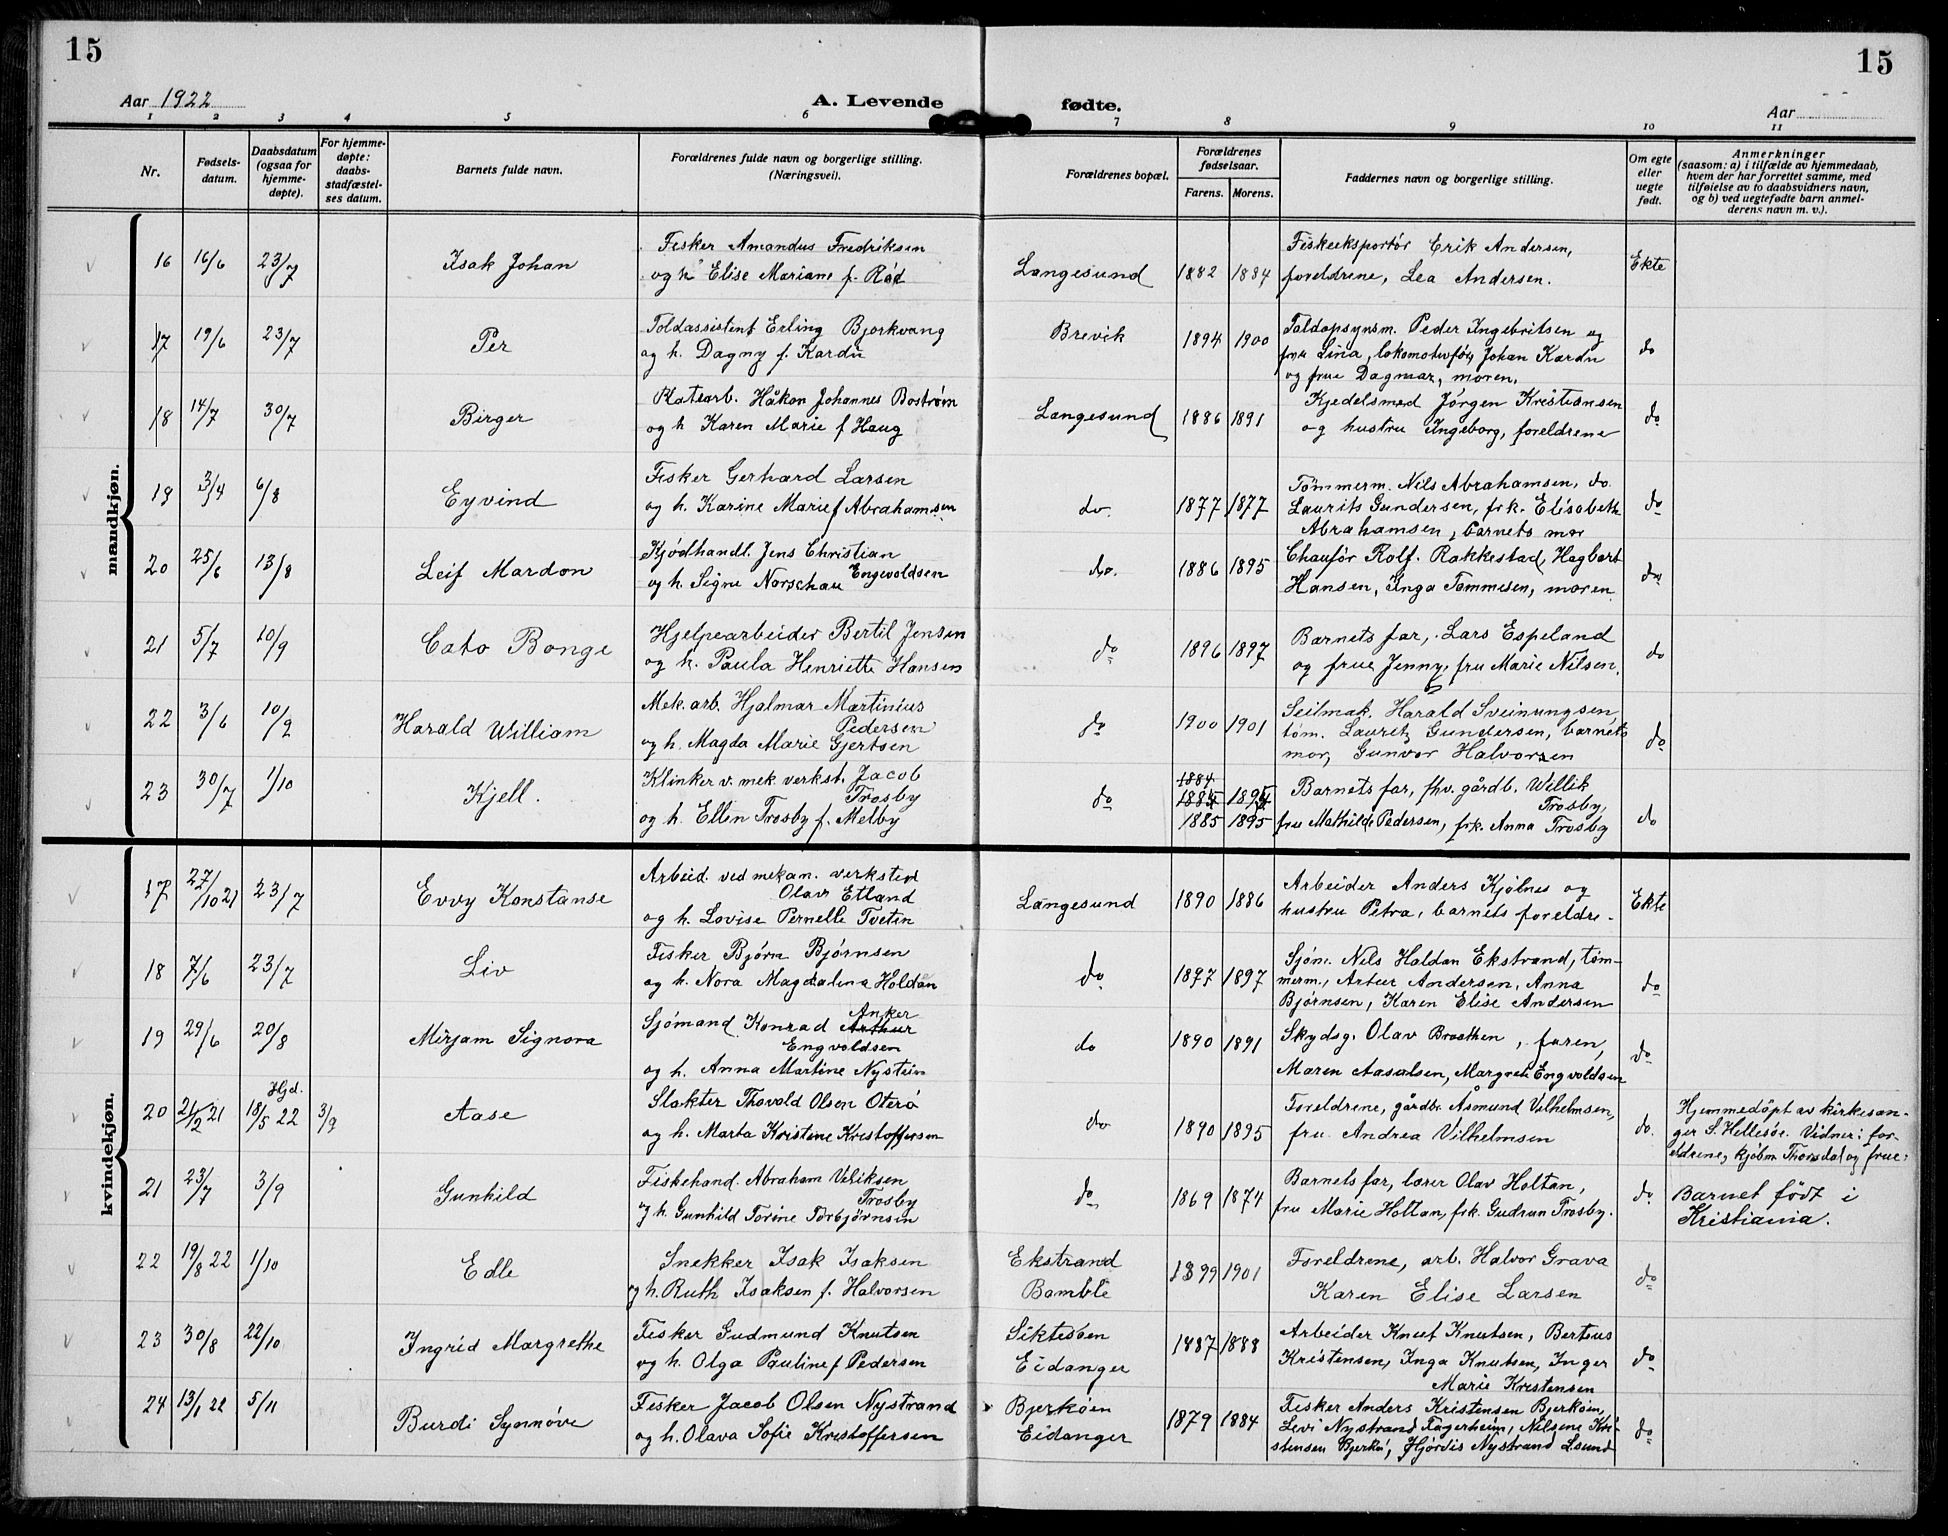 15
15
Aar 1922
A. Levende fødte.
Aar
1 2 3 4 5 6 7 8 9 10 11
Nr.
Fødsels-
datum.
Daabsdatum
(ogsaa for
hjemme-
døpte).
For hjemme-
døpte:
daabs-
stadfæstel-
ses datum.
Barnets fulde navn.
Forældrenes fulde navn og borgerlige stilling.
(Næringsvei).
Forældrenes bopæl.
Forældrenes
fødselsaar.
Farens. Morens.
Faddernes navn og borgerlige stilling.
Om egte
eller
uegte
født.
Anmerkninger
(saasom: a) i tilfælde av hjemmedaab,
hvem der har forrettet samme, med
tilføielse av to daabsvidners navn,
og b) ved uegtefødte barn anmel-
derens navn m. v.).
mandkjøn.
16 16/6 23/7 Isak Johan
Fisker Amandus Fredriksen
og h. Elise Mariane f. Rød
Langesund 1882 1884
Fiskeeksportør Erik Andersen,
foreldrene, Lea Andersen.
Ekte
17 19/6 23/7 Per
Toldassistent Erling Bjorkvang
og h. Dagny f. Kardu
Brevik 1894 1900
Toldopsynsm. Peder Ingebritsen og
frue Lina, lokomotivför, Johan Kardu
og frue Dagmar, moren.
do
18 14/7 30/7 Birger
Platearb. Håkon Johannes Bostrøm
og h Karen Marie f Haug
Langesund 1886 1891
Kjedelsmed Jörgen Kristiansen
og hustru Ingeborg, foreldrene
do
19 3/4 6/8 Eyvind
Fisker Gerhard Larsen
og h. Karine Marie f Abrahamsen
do. 1877 1877
Tömmerm. Nils Abrahamsen, do.
Laurits Gundersen, frk. Elisabeth
Abrahamsen, barnets mor
do
20 25/6 13/8 Leif Mardon
Kjødhandl. Jens Christian
Engevoldsen
og h. Signe Norschau
do. 1886 1895
Chaufør Rolf. Rakkestad, Hagbart
Hansen, Inga Tommesen, moren
do
21 5/7 10/9 Cato Bonge
Hjelpearbeider Bertil Jensen
og h. Paula Henriette Hansen
do 1896 1897
Barnets far, Lars Espeland
og frue Jenny, fru Marie Nilsen.
do
22 3/6 10/9 Harald William
Mek. arb. Hjalmar Martinius
Pedersen
og h. Magda Marie Gjertsen
do 1900 1901
Seilmak. Harald Sveinungsen,
töm. Lauritz Gundersen, barnets
mor, Gunvor Halvorsen
do
23 30/7 1/10 Kjell.
Klinker v. mek. verkst. Jacob
Trosby
og h. Ellen Trosby f. Melby
do
1884
1885 1894
1885 1895
Barnets far, fhv. gårdb. Willik
Trosby,
fru Mathilde Pedersen, frk. Anna Trosby
do
kvindekjøn.
17 27/10 21 23/7 Evvy Konstanse
Arbeid. ved mekan. verksted
Olav Etland
og h. Lovise Pernelle Tvetin
Langesund 1890 1886
Arbeider Anders Kjölnes og
hustru Petra, barnets foreldre.
Ekte
18 7/6 23/7 Liv
Fisker Bjørn Bjørnsen
og h. Nora Magdalena Holdan
do 1897 1897
Sjöm. Nils Haldan Ekstrand, töm-
merm., Artur Andersen, Anna
Bjørnsen, Karen Elise Andersen
do
19 29/6 20/8 Mirjam Signora
Anker
Sjömand Konrad Arthur
Engvoldsen
og h. Anna Martine Nystein
do 1890 1891
Skydsg. Olav Braathen, faren,
Maren Aasulsen, Margrete Engvoldsen
do
20 21/2 21 Hjd. 18/5 22 3/9 Aase
Slakter Thovald Olsen Oterö
og h. Marta Kristine Kristoffersen
do 1890 1895
Foreldrene, gårdbr. Åsmund Vilhelmsen,
fru Andrea Vilhelmsen
do.
Hjemmedöpt av kirkesan-
ger S. Hellisöe. Vidner: for-
eldrene, kjöbm Thorsdal og frue.
21 23/7 3/9 Gunhild
Fiskehand. Abraham Veliksen
Trosby
og h. Gunhild Torine Torbjørnsen
do 1869 1874
Barnets far, lærer Olav Holtan,
fru Marie Holtan, frk. Gudrun Trosby.
do
Barnet födt i
Kristiania.
22 19/8 22 1/10 Edle
Snekker Isak Isaksen
og h. Ruth Isaksen f. Halvorsen
Ekstrand
Bamble
1899 1901
Foreldrene, arb. Halvor Grava
Karen Elise Larsen
do
23 30/8 22/10 Ingrid Margrethe
Fisker Gudmund Knutsen
og h. Olga Pauline f Pedersen
Siktesöen
Eidanger
1887 1888
Arbeider Knut Knutsen, Bertous
Kristensen, Inga Knutsen, Inger
Marie Kristensen
do
24 13/1 22 5/11 Burdi Synnøve
Fisker Jacob Olsen Nystrand
og h. Olava Sofie Kristoffersen
Bjerköen
Eidanger
1879 1884
Fisker Anders Kristensen Bjerköen,
Levi Nystrand Fagerheim, Nilsine Kri-
stensen Bjerkö, Hjördis Nystrand Lsund
do